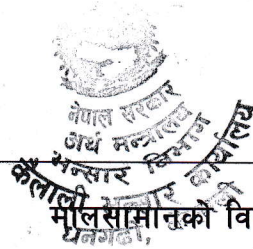 नेपाल सरकार
अर्थ मन्त्रालय
भन्सार विभाग
कैलाली भन्सार कार्यालय
धनगढी,
मालसामानको वि